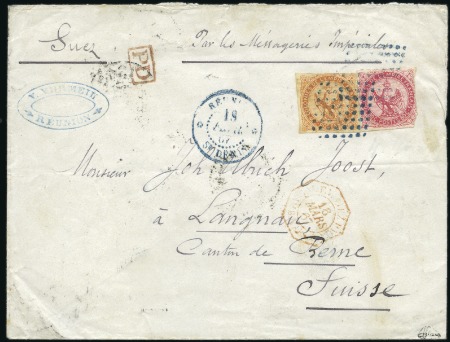 Suez Par les Messageries Impériales
PD
REUNION
18
St DENIS
Monsieur Joh Ulrich Joost,
18
MARS
à Langnau
Canton de Berne
Suisse